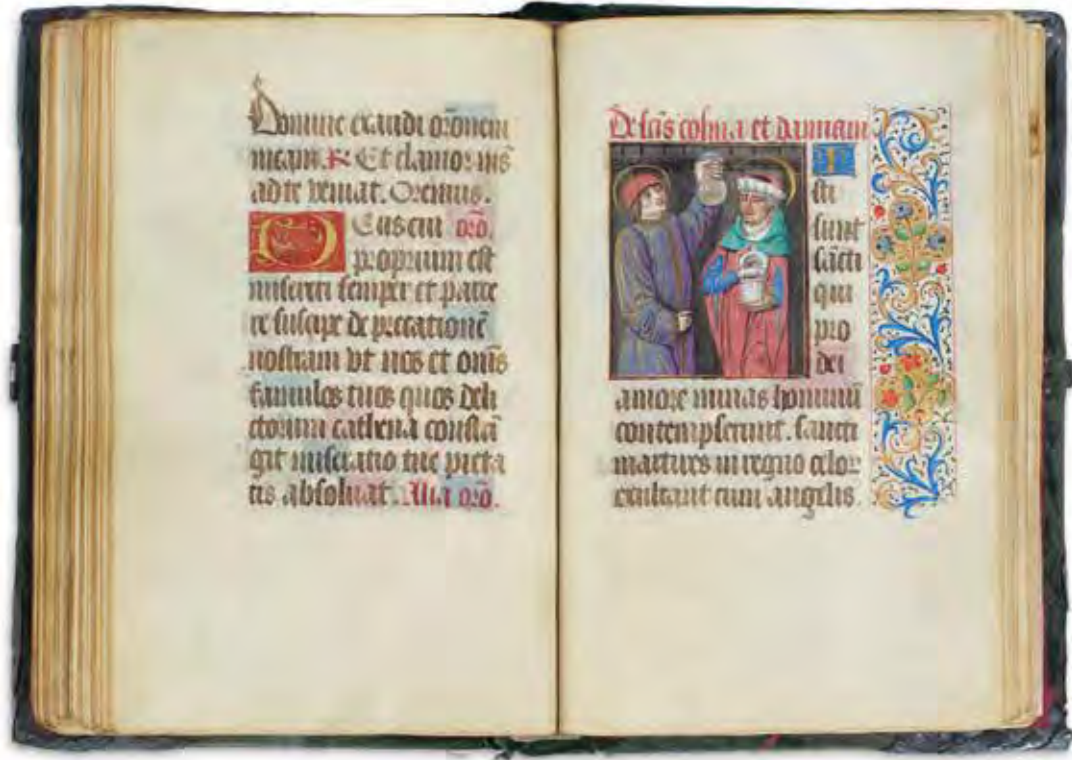 Domine exaudi or̄onem
meam. R̷ Et clamor m̄s
ad te veniat. Oremus.
Deus cui or̄o.
proprium est
misereri semper et parce
re suscipe deprecationē
nostram vt nos et om̄s
famulos tuos quos deli
ctorum cathena constrī
git miseratio tue pieta
tis absoluat. Alia or̄o.
De sc̄is cosma et damiani
Isti
sunt
sancti
qui
pro
dei
amore minas hominū
contempserunt. sancti
martires in regno celor
exultant cum angelis.